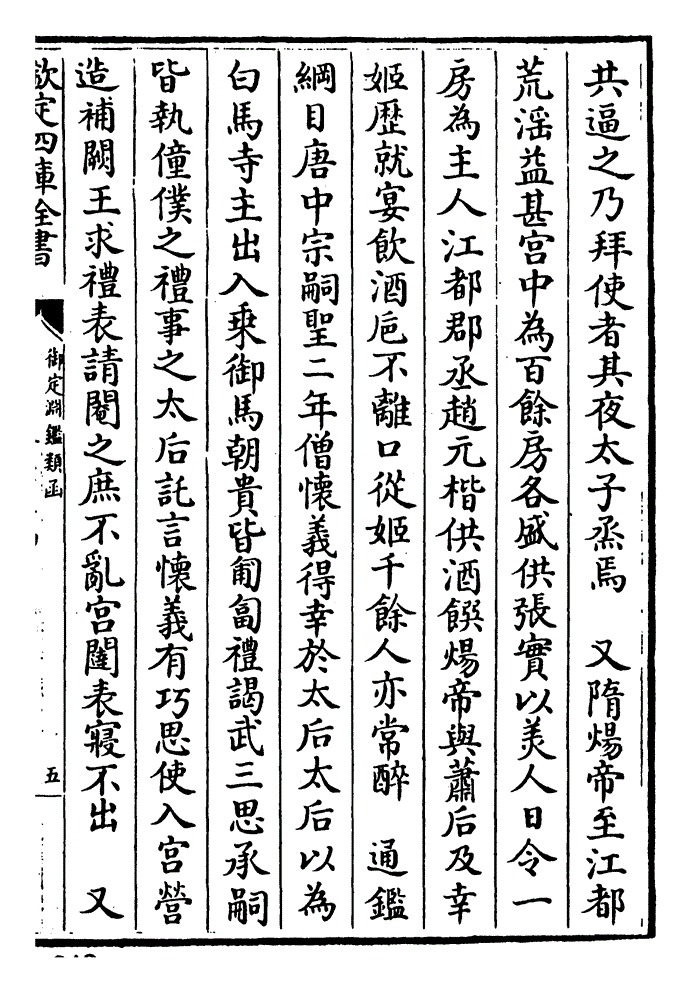 共逼之乃拜使者其夜太子烝焉　又隋煬帝至江都
荒淫益甚宫中為百餘房各盛供張實以美人日令一
房為主人江都郡丞趙元楷供酒饌煬帝與蕭后及幸
姬歴就宴飲酒巵不離口從姬千餘人亦常醉　通鑑
綱目唐中宗嗣聖二年僧懷義得幸於太后太后以為
白馬寺主出入乗御馬朝貴皆匍匐禮謁武三思承嗣
皆執僮僕之禮事之太后託言懷義有巧思使入宫營
造補闕王求禮表請閹之庶不亂宫闥表寢不出　又
欽定四庫全書
御定淵鑑類函
五